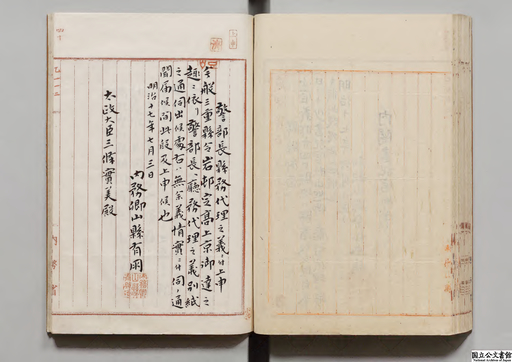 警部長縣務代理之義ニ付上申
今般三重縣令岩村定高上京御達之
趣ニ依リ警部長ヘ廳務代理之義別紙
之通伺出候處右ハ無余義情實ニ付伺ノ通
聞届候間此段及上申候也
明治十七年七月三日
内務卿山縣有朋
太政大臣三條實美殿
内務省
国立公文書館
National Archives of Japan